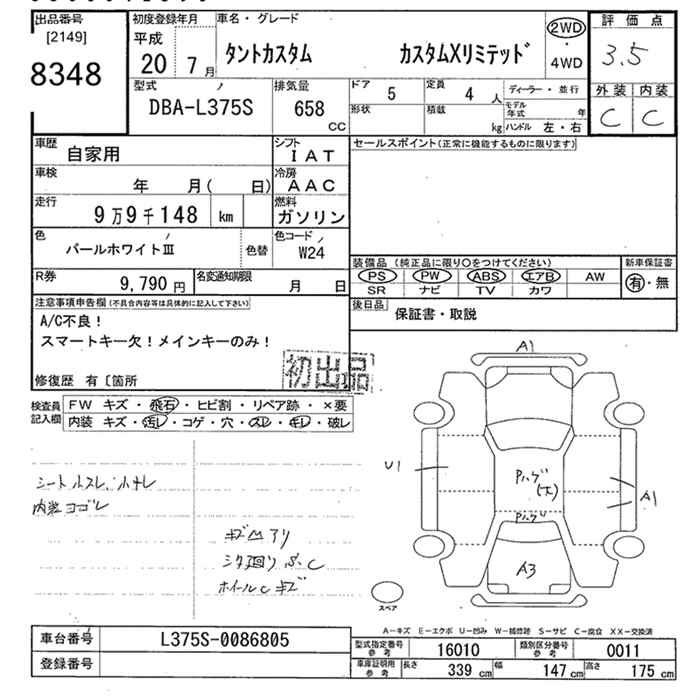 出品番号
[2149]
8348
初度登録年月
平成
20 7月
車名・グレード
タントカスタム カスタムXリミテッド
2WD
・
4WD
評価点
3.5
外装 内装
C C
型式
DBA-L375S
排気量
658
CC
ドア
5
定員
4 人
形状
積載
kg
ディーラー・並行
モデル年式 年
ハンドル 左・右
車歴
自家用
シフト
IAT
車検
年 月( 日)
冷房
AAC
走行
9万9千148 km
燃料
ガソリン
色
パールホワイトⅢ
色替
色コード
W24
R券
9,790 円
名変通知期限
月 日
セールスポイント(正常に機能するものに限ります)
装備品 (純正品に限り○をつけてください)
PS PW ABS エアB AW
SR ナビ TV カワ
新車保証書
有・無
後日品
保証書・取説
注意事項申告欄(不具合内容等は具体的に記入して下さい)
A/C不良!
スマートキー欠!メインキーのみ!
修復歴 有〔箇所
初出品
検査員
記入欄
FW キズ・飛石・ヒビ割・リペア跡・×要
内装 キズ・汚レ・コゲ・穴・スレ・キレ・破レ
内装ヨゴレ
キズ凹アリ
ホイールCキズ
A1
U1
Pハゲ
(大)
A1
Pハゲ
A3
スペア
A-キズ E-エクボ U-凹み W-補修跡 S-サビ C-腐食 XX-交換済
車台番号
L375S-0086805
登録番号
型式指定番号
参考
16010
類別区分番号
参考
0011
車庫証明用
参考
長さ 339 cm
幅 147 cm
高さ 175 cm